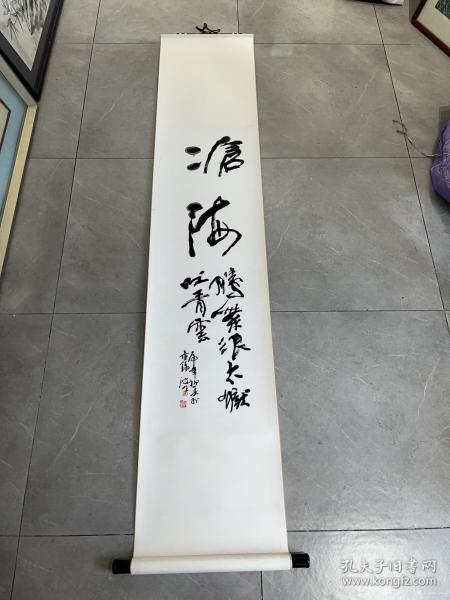 滄海
騰紫浪太嶽
吐青雲
孔夫子旧书网
www.kongfz.com